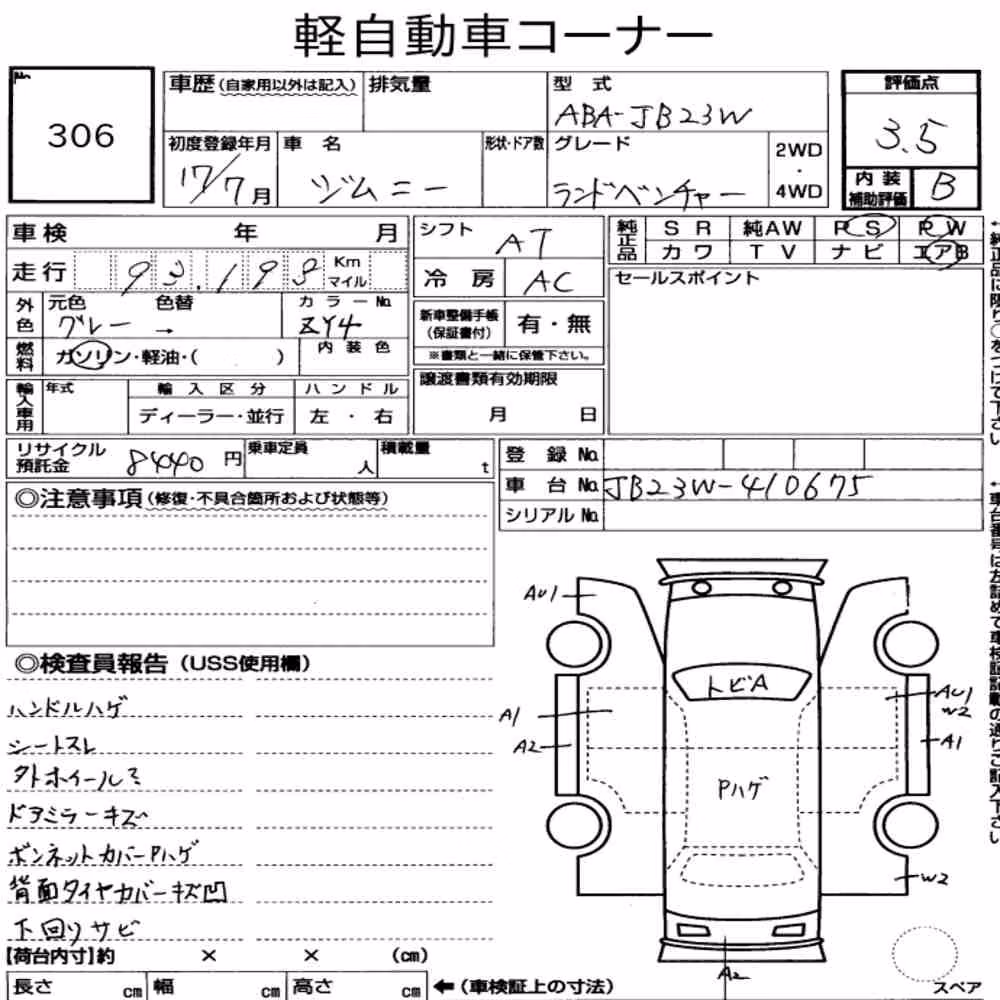 軽自動車コーナー
No.
306
車歴(自家用以外は記入)
排気量
型式
ABA-JB23W
評価点
3.5
初度登録年月
17/7月
車名
ジムニー
形状・ドア数
グレード
ランドベンチャー
2WD
・
4WD
内装
補助評価
B
車検 年 月
シフト
AT
純正品
SR 純AW PS PW
カワ TV ナビ エアB
走行
93,198
Km
マイル
冷房
AC
セールスポイント
外色
元色 色替 カラーNo.
グレー → ZY4
新車整備手帳
(保証書付)
有・無
※書類と一緒に保管下さい。
燃料
ガソリン・軽油・( )
内装色
輸入車用
年式
輸入区分
ハンドル
ディーラー・並行
左・右
譲渡書類有効期限
月 日
リサイクル
預託金
8440円
乗車定員
人
積載量
t
登録No.
車台No.
JB23W-410675
シリアルNo.
◎注意事項(修復・不具合箇所および状態等)
◎検査員報告(USS使用欄)
ハンドルハゲ
シートスレ
タトホイールミ
ドアミラーキズ
ボンネットカバーPハゲ
背面タイヤカバーキズ凹
下回りサビ
AU1
トビA
A1
A2
AU1
W2
A1
Pハゲ
W2
A2
スペア
【荷台内寸】約 × × (cm)
長さ cm
幅 cm
高さ cm
←(車検証上の寸法)
←純正品に限り○をつけて下さい
←車台番号は左詰めで車検証記載の通りご記入下さい